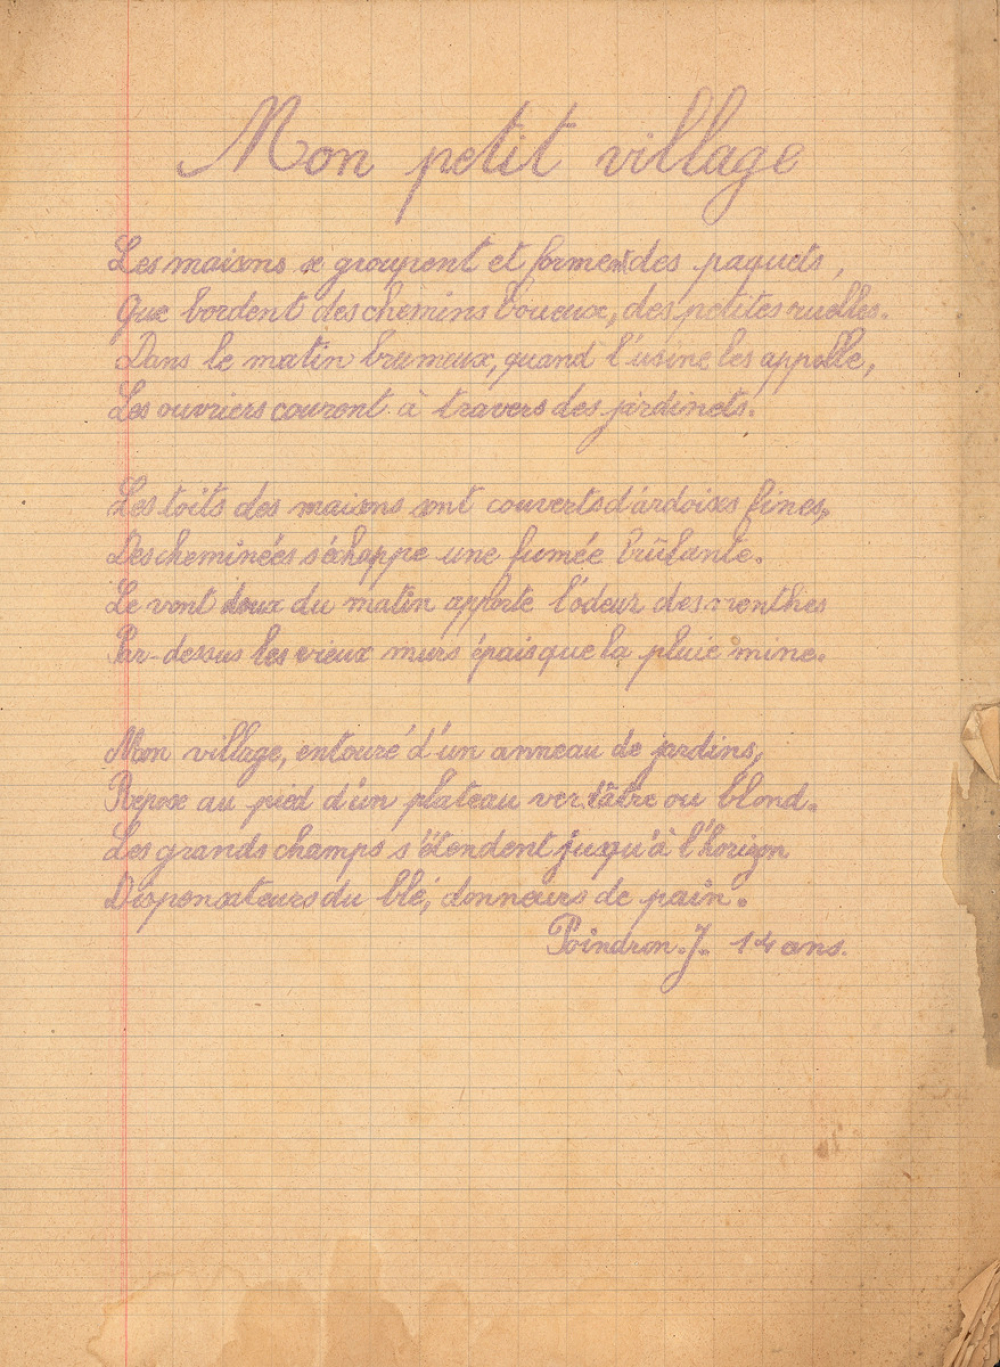 Mon petit village
Les maisons se groupent et forment des paquets,
Que bordent des chemins boueux, des petites ruelles.
Dans le matin brumeux, quand l'usine les appelle,
Les ouvriers courent à travers des jardinets.
Les toits des maisons sont couverts d'ardoises fines,
Des cheminées s'échappe une fumée brûlante.
Le vent doux du matin apporte l'odeur des menthes
Par-dessus les vieux murs épais que la pluie mine.
Mon village, entouré d'un anneau de jardins,
Repose au pied d'un plateau verdâtre ou blond.
Les grands champs s'étendent jusqu'à l'horizon
Dispensateurs du blé, donneurs de pain.
Poindron. J. 14 ans.